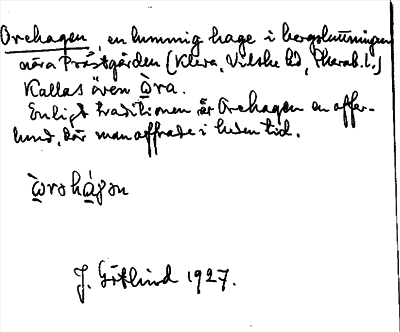 Orehagen, en lummig hage i bergsluttningen
nära Prästgården (Kleva, Vilske hd, Skarab. l.)
Kallas även Ora.
Enligt traditionen är Orehagen en offer-
lund, där man offrade i heden tid.
J. Götlind 1927.